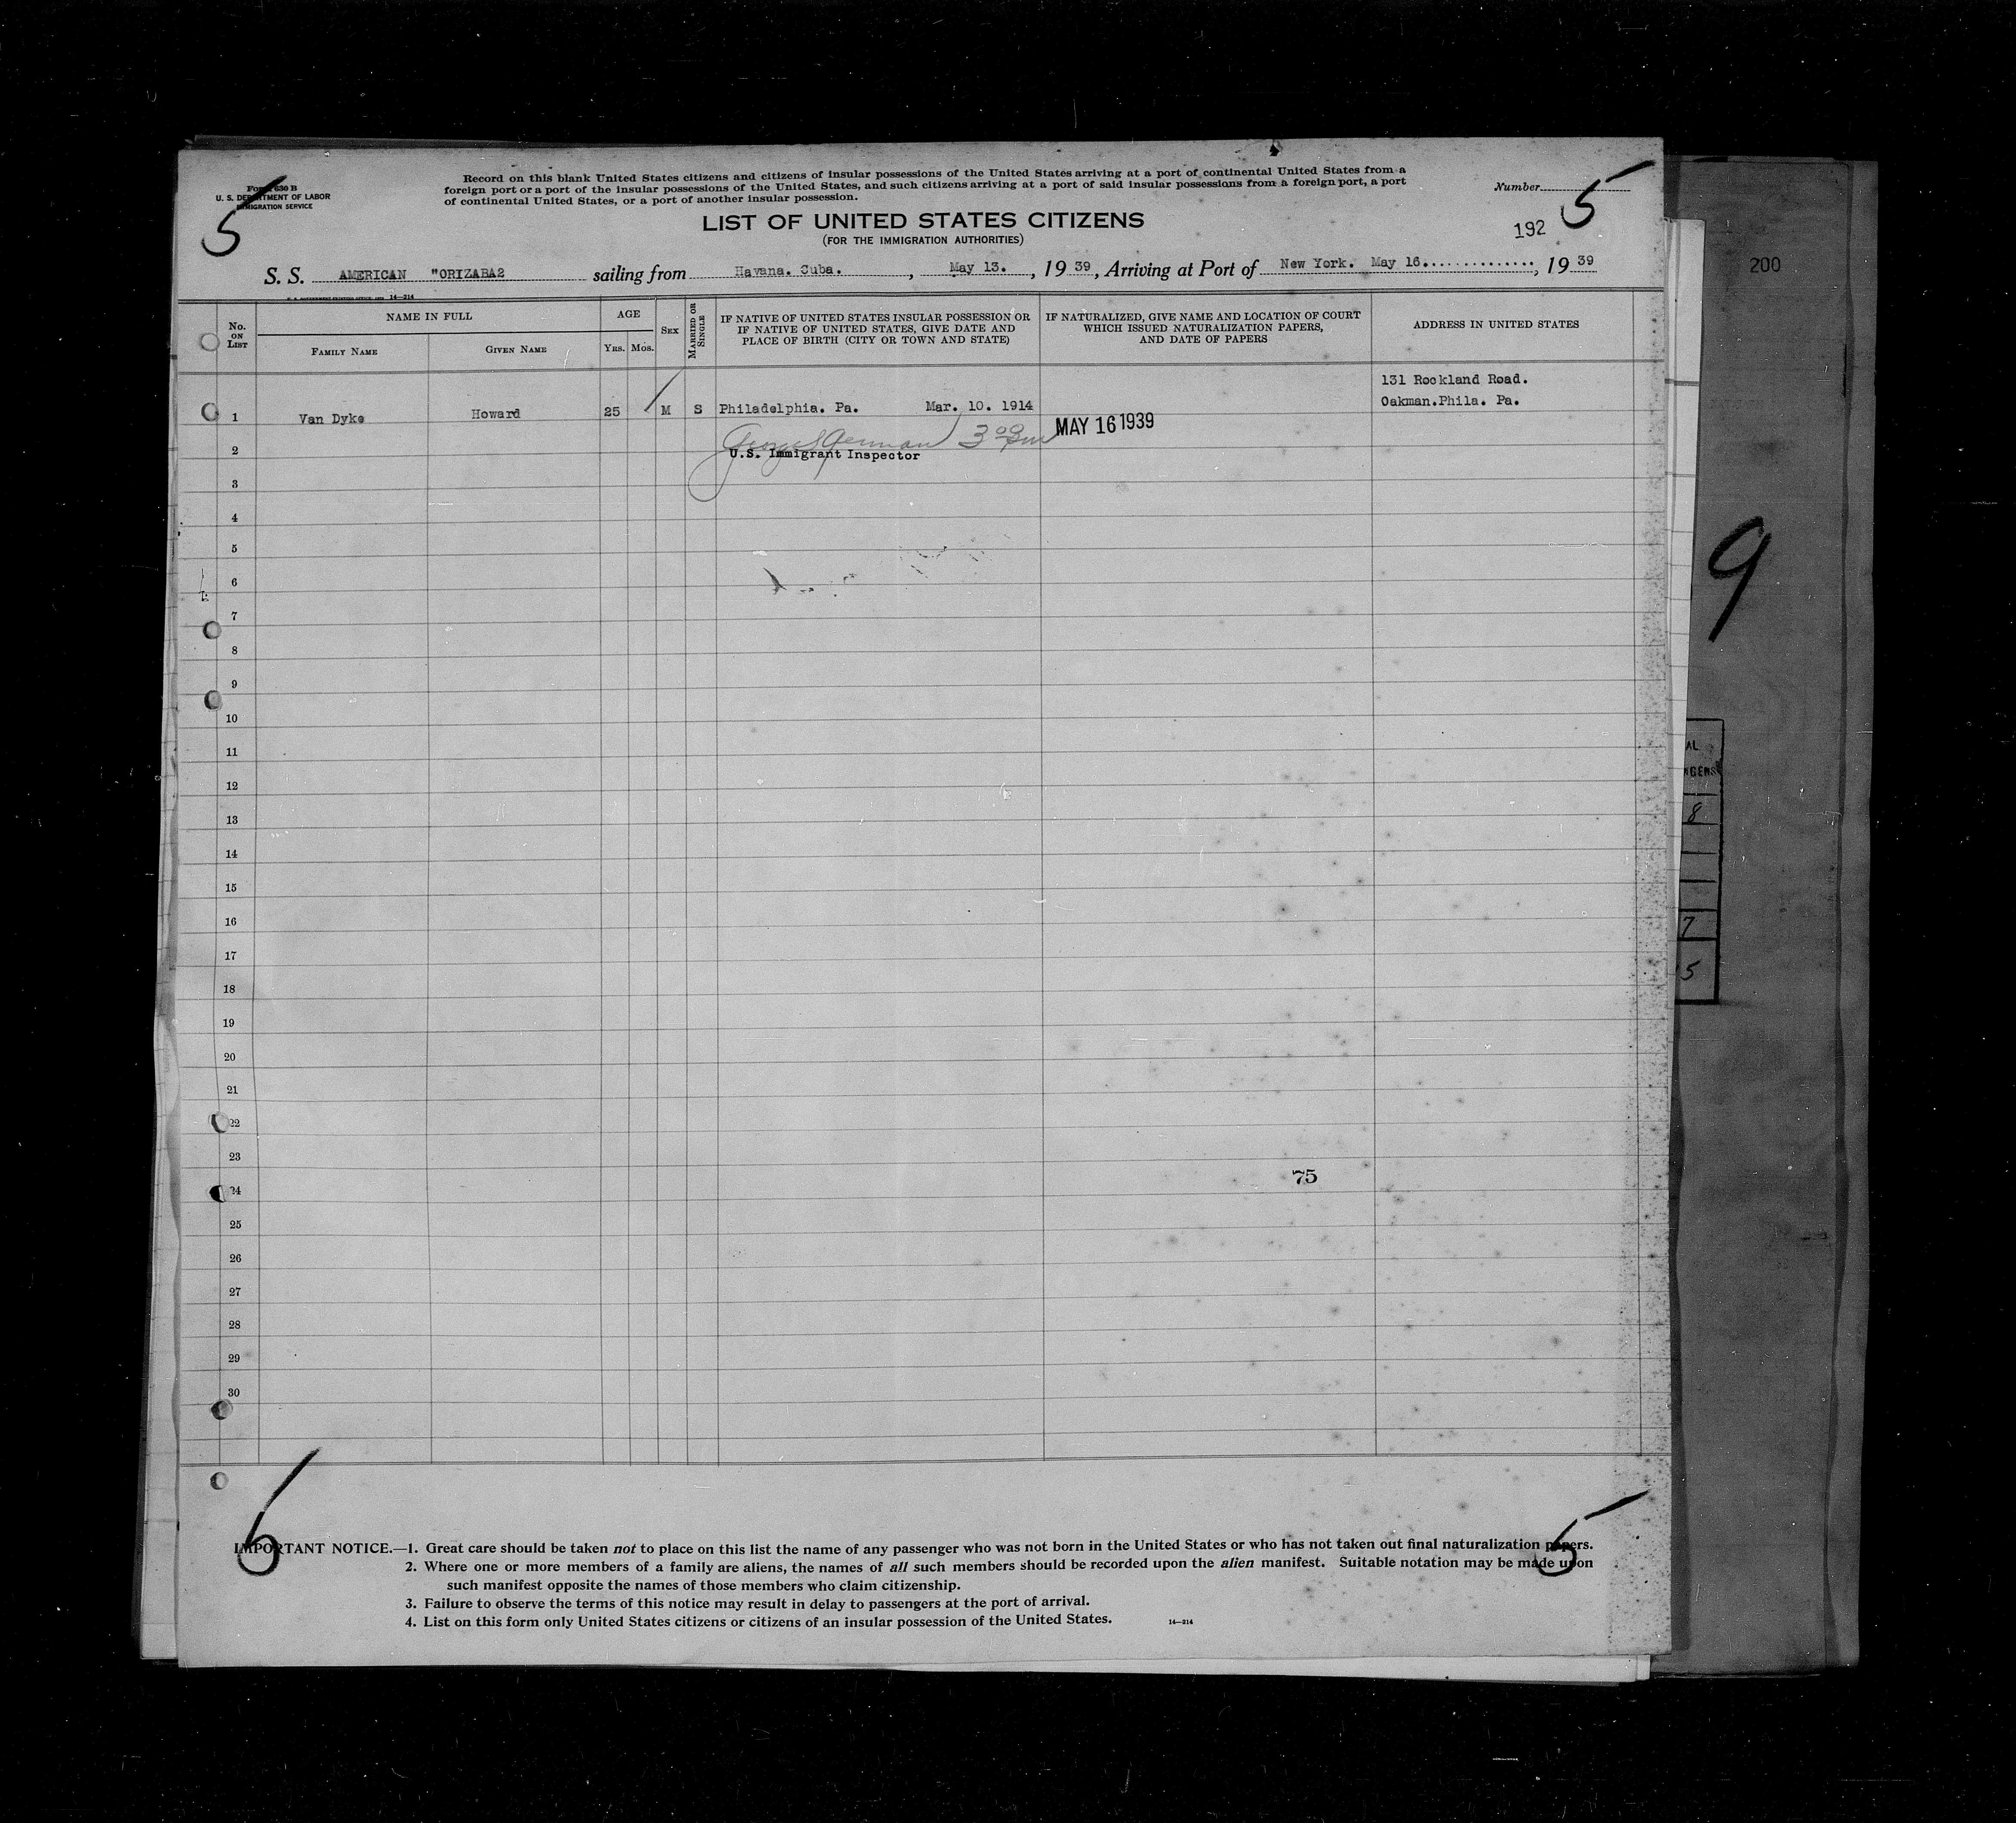 Record on this blank United States citizens and citizens of insular possessions of the United States arriving at a port of continental United States from a
foreign port or a port of the insular possessions of the United States, and such citizens arriving at a port of said insular possessions from a foreign port, a port
of continental United States, or a port of another insular possession.
Form 630 B
U. S. DEPARTMENT OF LABOR
IMMIGRATION SERVICE
5
Number
5
LIST OF UNITED STATES CITIZENS
(FOR THE IMMIGRATION AUTHORITIES)
192
S. S. AMERICAN "ORIZABA2 sailing from Havana. Cuba. , May 13. , 19 39, Arriving at Port of New York. May 16.............., 19 39
14—214
200
No. ON LIST
NAME IN FULL
FAMILY NAME
GIVEN NAME
AGE
YRS. MOS.
SEX
MARRIED OR SINGLE
IF NATIVE OF UNITED STATES INSULAR POSSESSION OR
IF NATIVE OF UNITED STATES, GIVE DATE AND
PLACE OF BIRTH (CITY OR TOWN AND STATE)
IF NATURALIZED, GIVE NAME AND LOCATION OF COURT
WHICH ISSUED NATURALIZATION PAPERS,
AND DATE OF PAPERS
ADDRESS IN UNITED STATES
131 Rockland Road.
Oakman.Phila. Pa.
1 Van Dyke Howard 25 M S Philadelphia. Pa. Mar. 10. 1914
MAY 16 1939
2
U.S. Immigrant Inspector
3
4
5
6
7
8
9
10
11
12
13
14
15
16
17
18
19
20
21
22
23
75
24
25
26
27
28
29
30
9
AL
NGENS
8
7
5
5
5
IMPORTANT NOTICE.—1. Great care should be taken not to place on this list the name of any passenger who was not born in the United States or who has not taken out final naturalization papers.
2. Where one or more members of a family are aliens, the names of all such members should be recorded upon the alien manifest. Suitable notation may be made upon
such manifest opposite the names of those members who claim citizenship.
3. Failure to observe the terms of this notice may result in delay to passengers at the port of arrival.
4. List on this form only United States citizens or citizens of an insular possession of the United States. 14—214